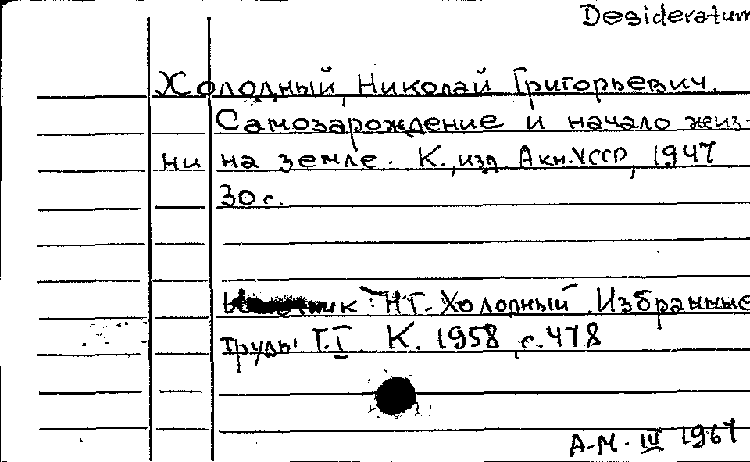 Desideratum
Холодный, Николай Григорьевич.
Самозарождение и начало жиз-
ни на земле. К., изд. Акн. УССР, 1947
30 с.
Н.Г. Холодный. Избранные
труды Т. I К. 1958, с. 478
А-М. IV 1967